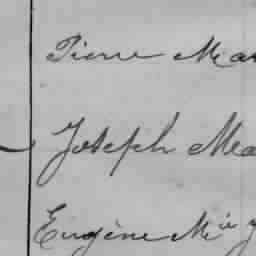 Pierre Mar
Joseph Ma
Eugène Mie